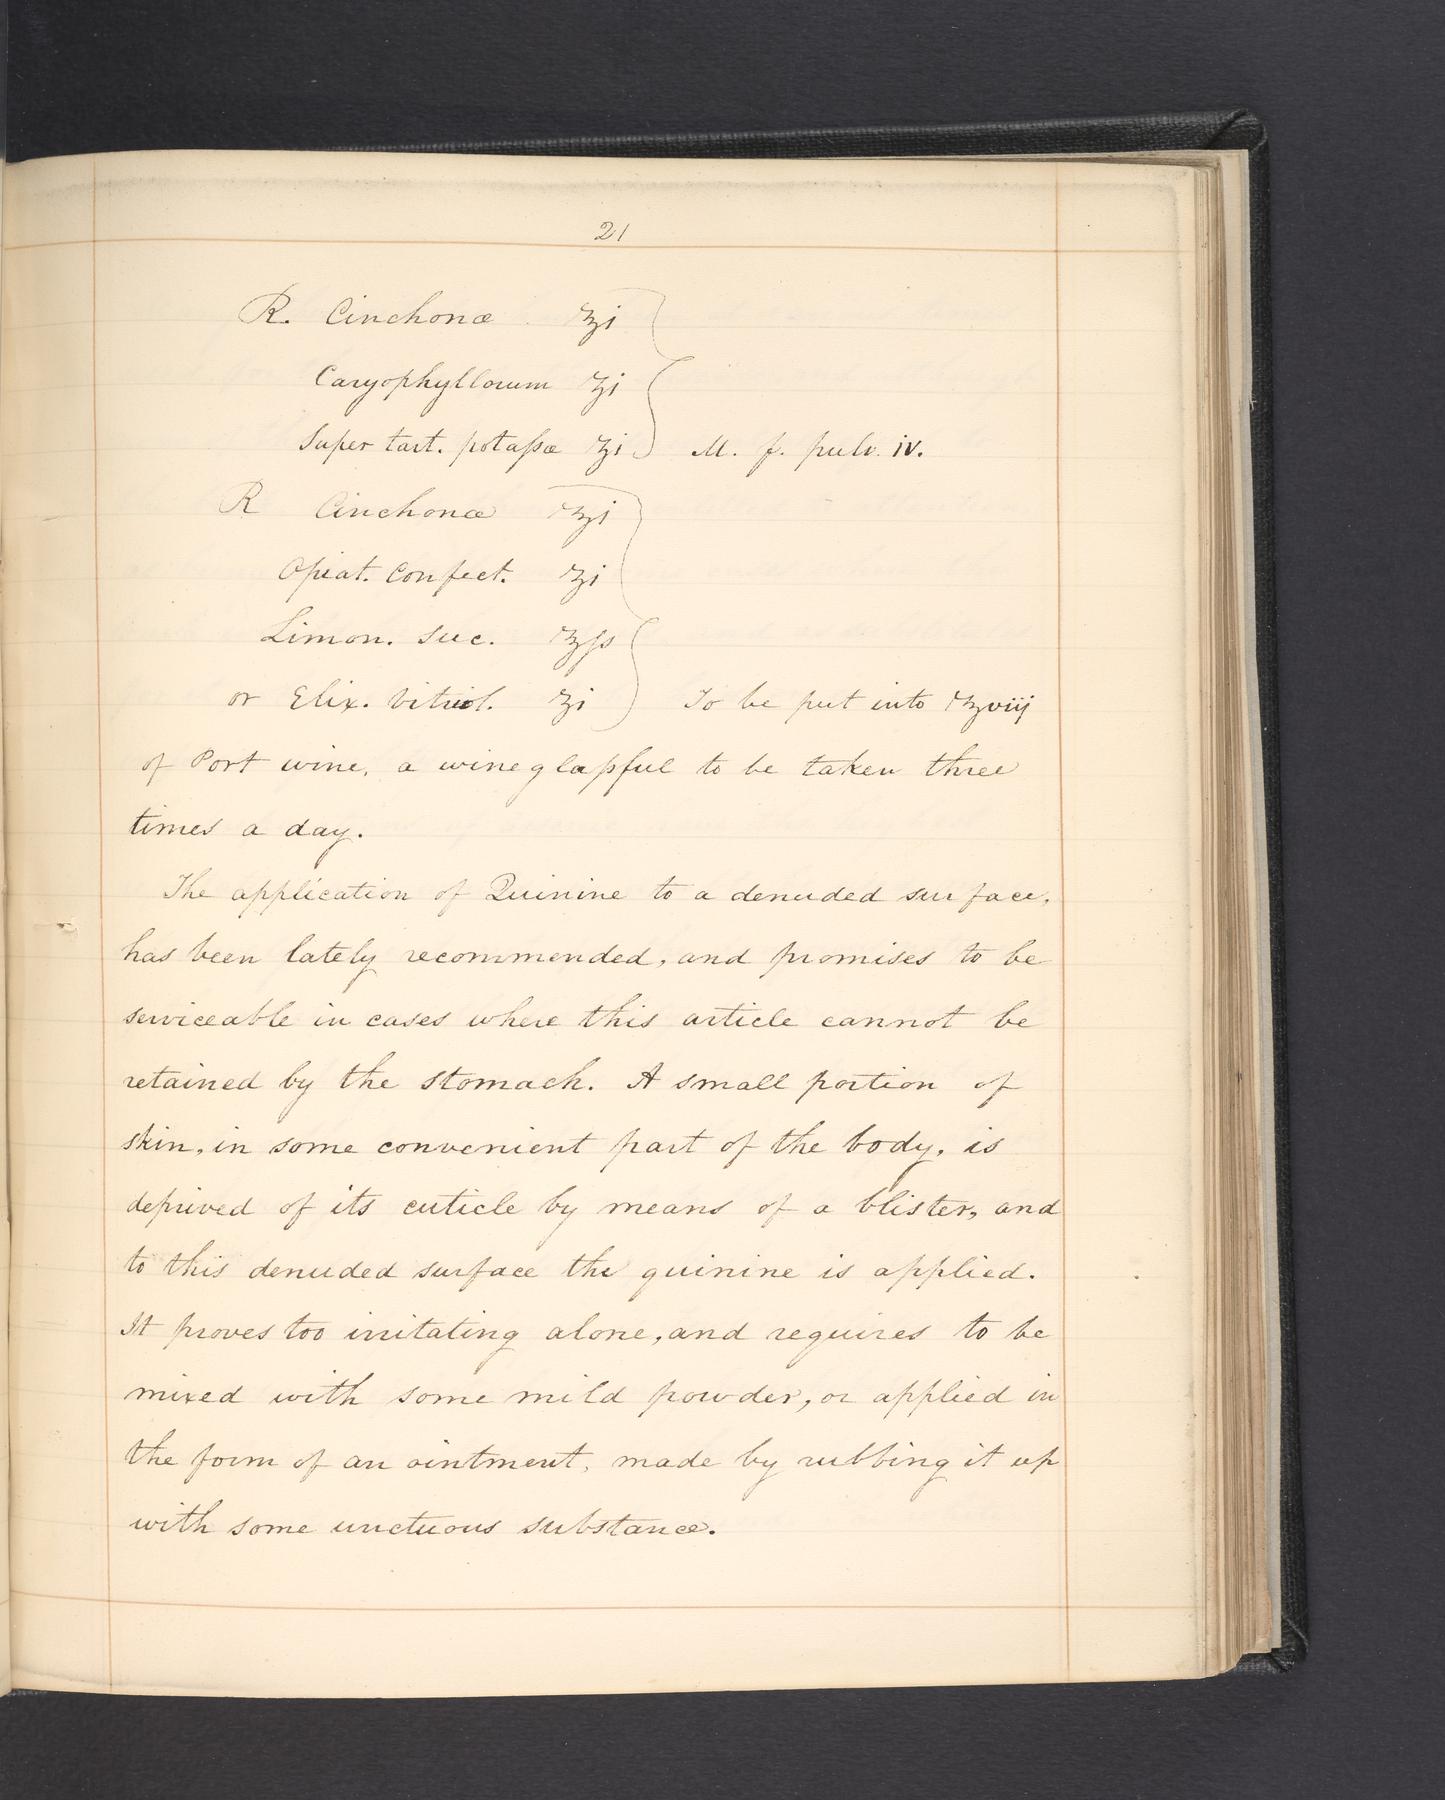 21
R. Cinchonæ ℥i
Caryophyllorum ʒi
Super tart. potassæ ʒi M. f. pulv. iv.
R Cinchonæ ℥i
Opiat. Confect. ʒi
Limon. Suc. ℥ss
or Elix. Vitriol. ʒi To be put into ℥viij
of Port wine, a wineglassful to be taken three
times a day.
The application of Quinine to a denuded surface,
has been lately recommended, and promises to be
serviceable in cases where this article cannot be
retained by the stomach. A small portion of
skin, in some convenient part of the body, is
deprived of its cuticle by means of a blister, and
to this denuded surface the quinine is applied.
It proves too irritating alone, and requires to be
mixed with some mild powder, or applied in
the form of an ointment, made by rubbing it up
with some unctuous substance.